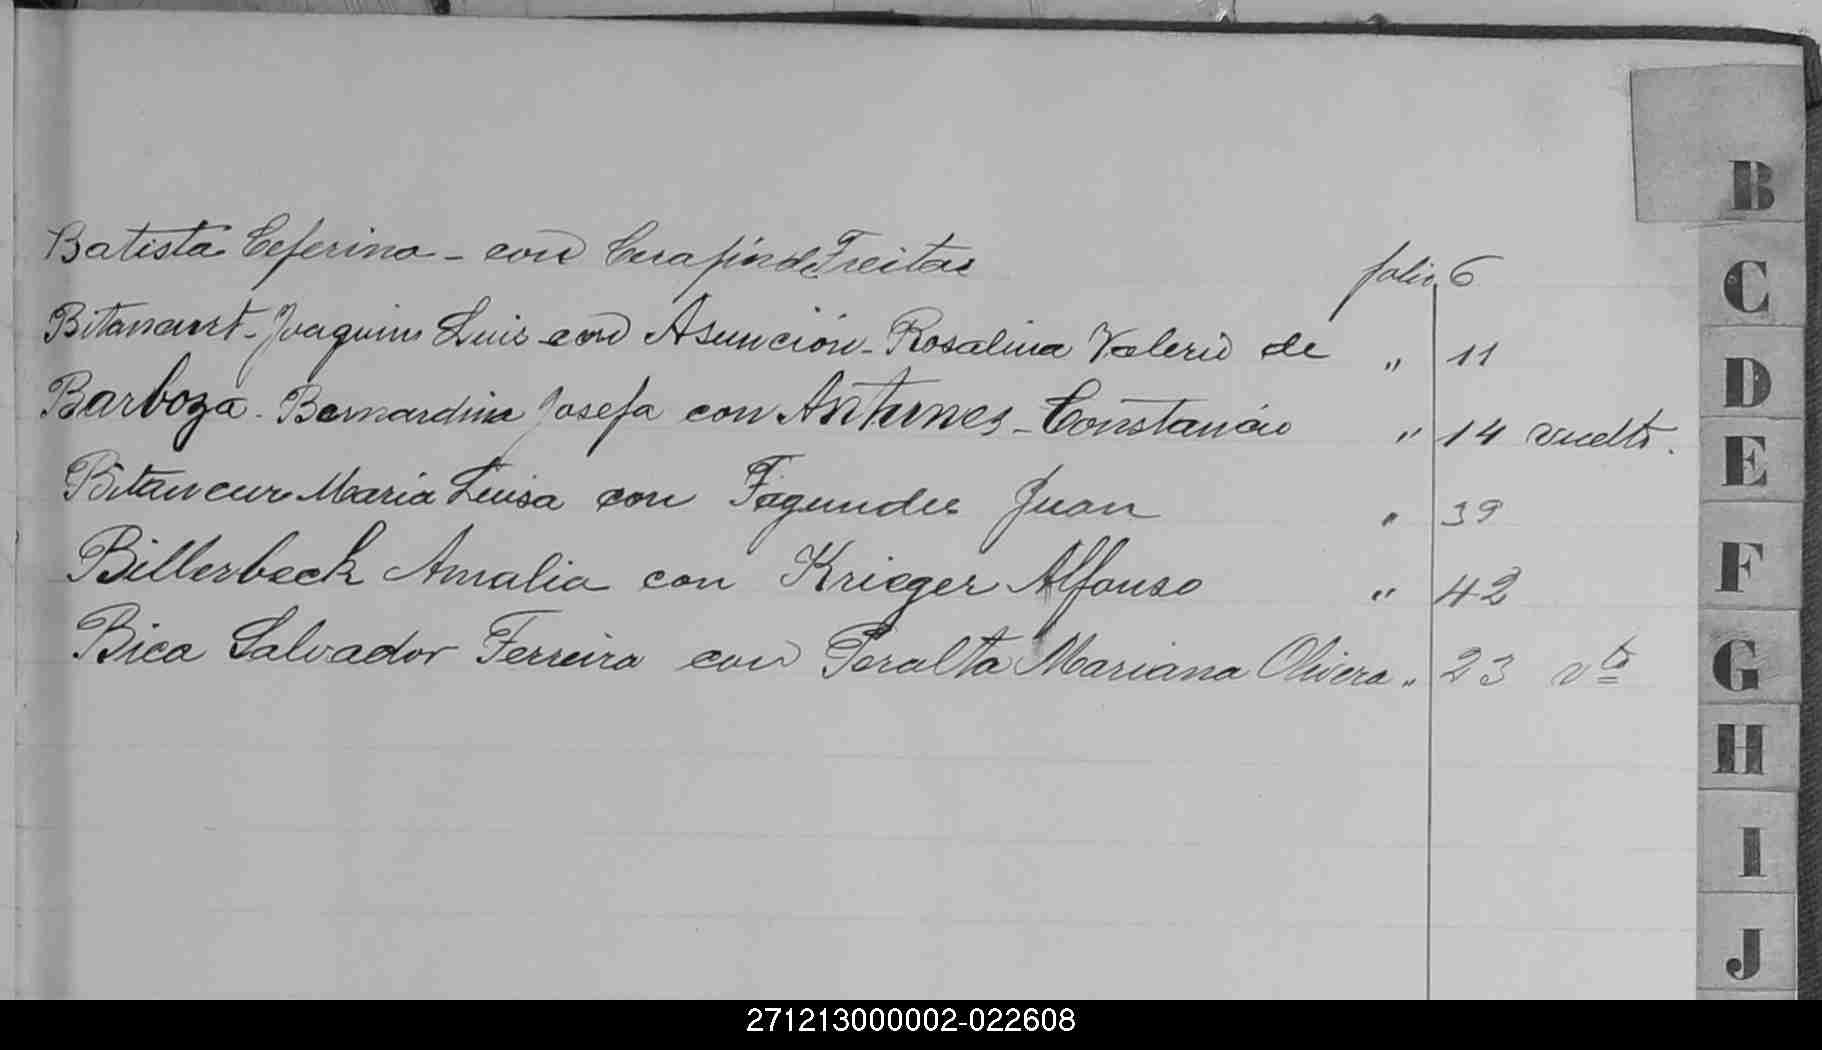 Batista Ceferino - con Cerafin de Freitas folio 6
Bitancurt - Joaquin Luis con Asunción - Rosalina Valerio de " 11
Barboza - Bernardina Josefa con Antunes - Constancio " 14 vuelta.
Bitancur Maria Luisa con Fagundes Juan " 39
Billerbeck Amalia con Krieger Alfonso " 42
Bica Salvador Ferreira con Peralta Mariana Olivera " 23 vta
B
C
D
E
F
G
H
I
J
271213000002-022608